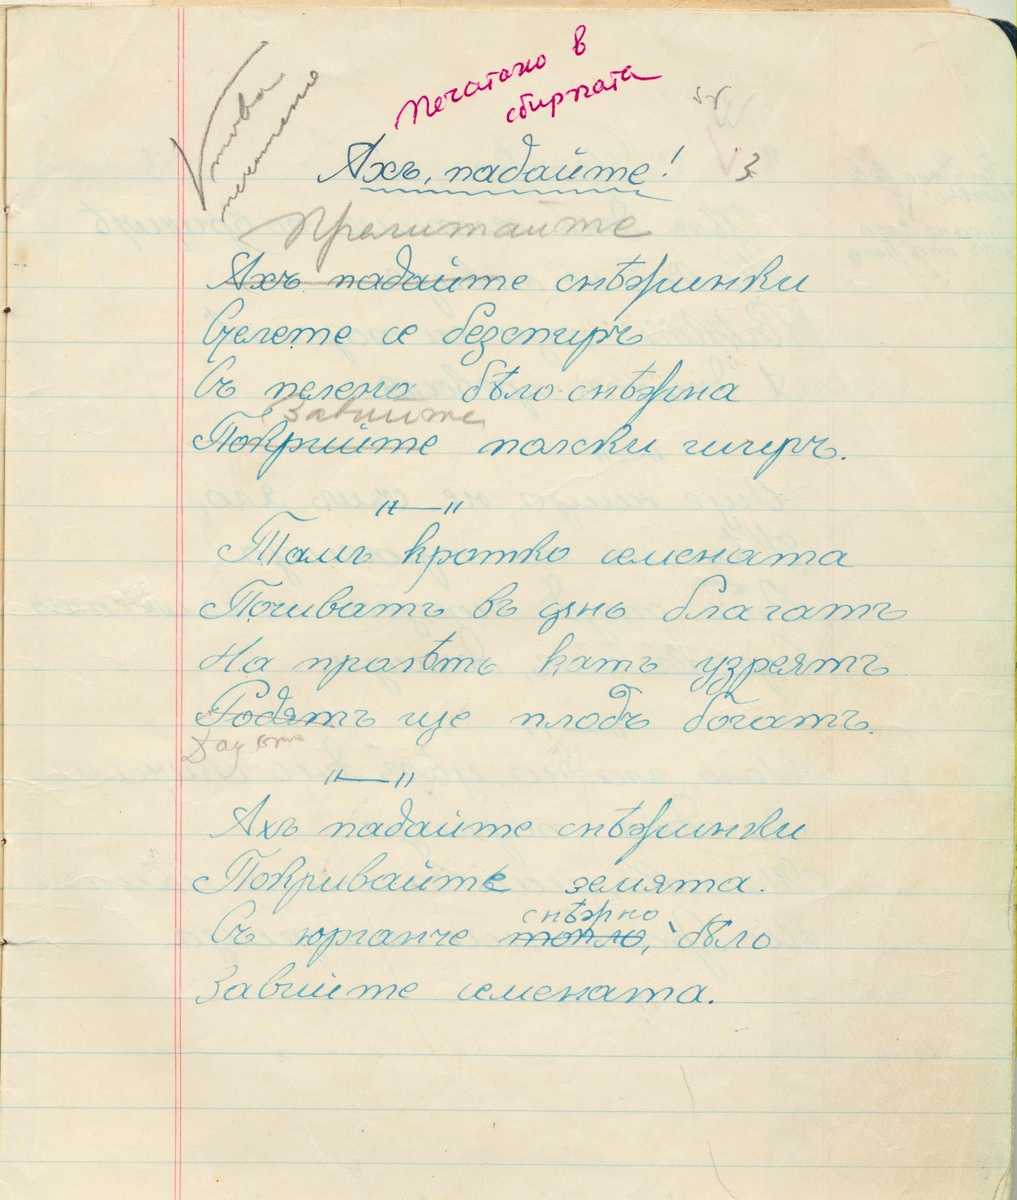 Печатано в
сбирката
това
печатано
Ахъ, падайте!
3.
Прелитайте
Ахъ падайте снѣжинки
Стелете се безспиръ
Съ пелена бѣло-снѣжна
Завийте
Покрийте полски ширъ.
"—"
Тамъ кротко семената
Почиватъ въ день благатъ
На пролѣть катъ узреятъ
Родятъ ще плодъ богатъ.
"—"
Ахъ падайте снѣжинки
Покривайте земята.
снѣжно
Съ юрганче топло, бѣло
Завийте семената.